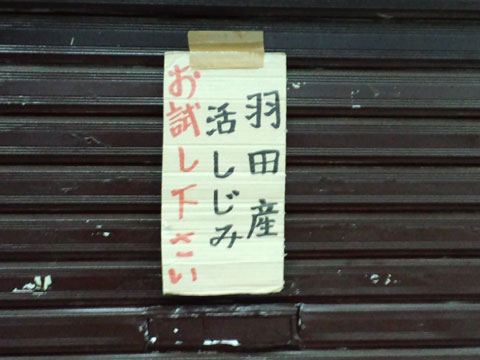 羽田産
活しじみ
お試し下さい